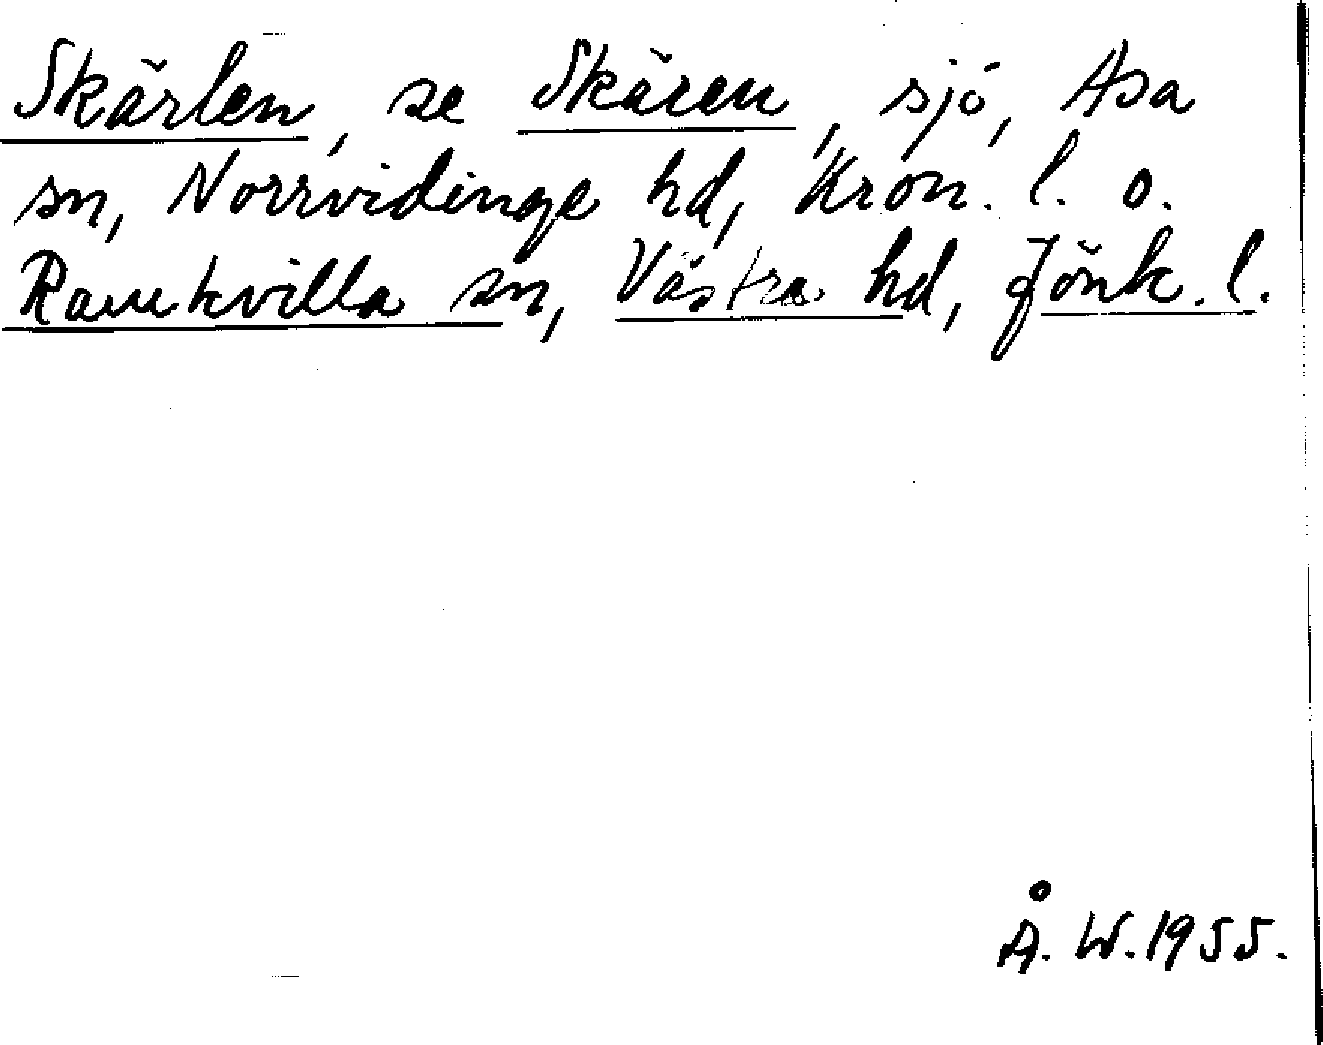 Skärlen, se Skären, sjö, Asa
sn, Norrvidinge hd, Kron. l. o.
Ramkvilla sn, Västra hd, Jönk. l.
Å. W. 1955.